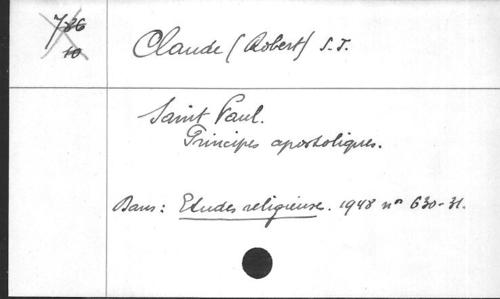 786
10
Claude (Robert) S.J.
Saint Paul.
Principes apostoliques.
Dans: Etudes religieuse. 1948 nos 630-31.